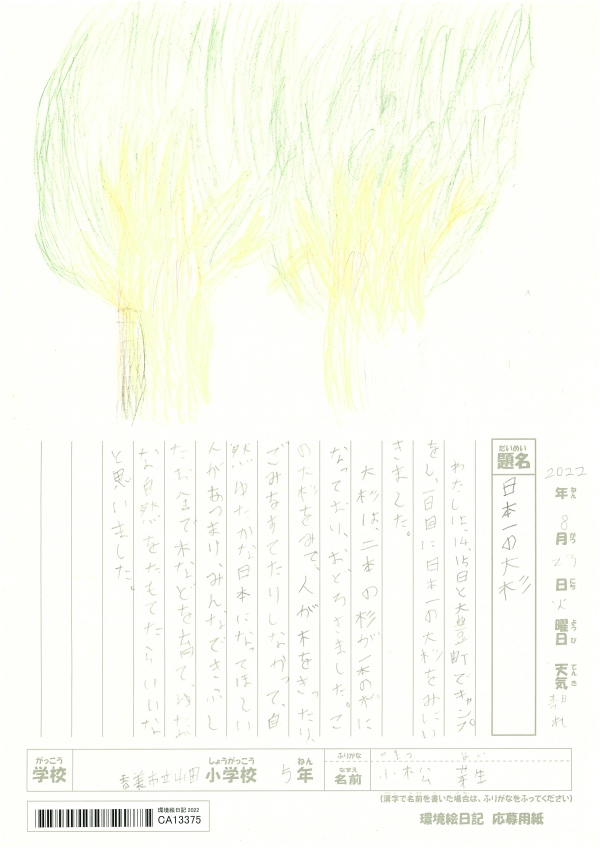 2022
年 ねん
8
月 がつ
23
日 にち
火
曜日 ようび
天気 てんき
晴れ
だいめい
題名
日本一の大杉
わたしは、14、15日と大豊町でキャンプ
をし、一日目に日本一の大杉をみにい
きました。
大杉は、二本の杉が一本の杉に
なっており、おどろきました。こ
の大杉をみて、人が木をきったり、
ごみをすてたりしなかって、自
然ゆたかな日本になってほしい
んがあつまけ、みんなできふし
たお金で木などを育て、ゆたか
な自然をたもてたらいいな
と思いました。
がっこう
学校
香美市立山田
しょうがっこう
小学校
5
ねん
年
ふりがな
なまえ
名前
小松 芽生
(漢字で名前を書いた場合は、ふりがなをふってください)
環境絵日記 2022
CA13375
環境絵日記 応募用紙